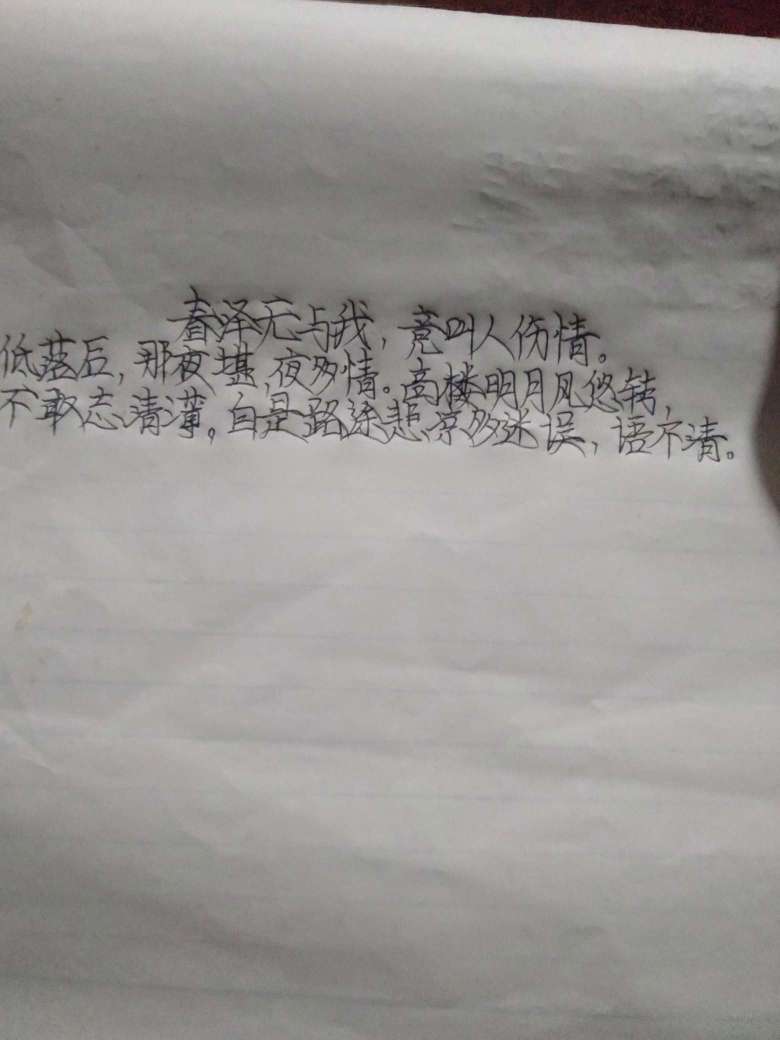 春泽无与我，竟叫人伤情。
低落后，那夜堪，夜多情。高楼明月风悠转，
不敢忘清薄。自是路途悲京多迷误，语不清。